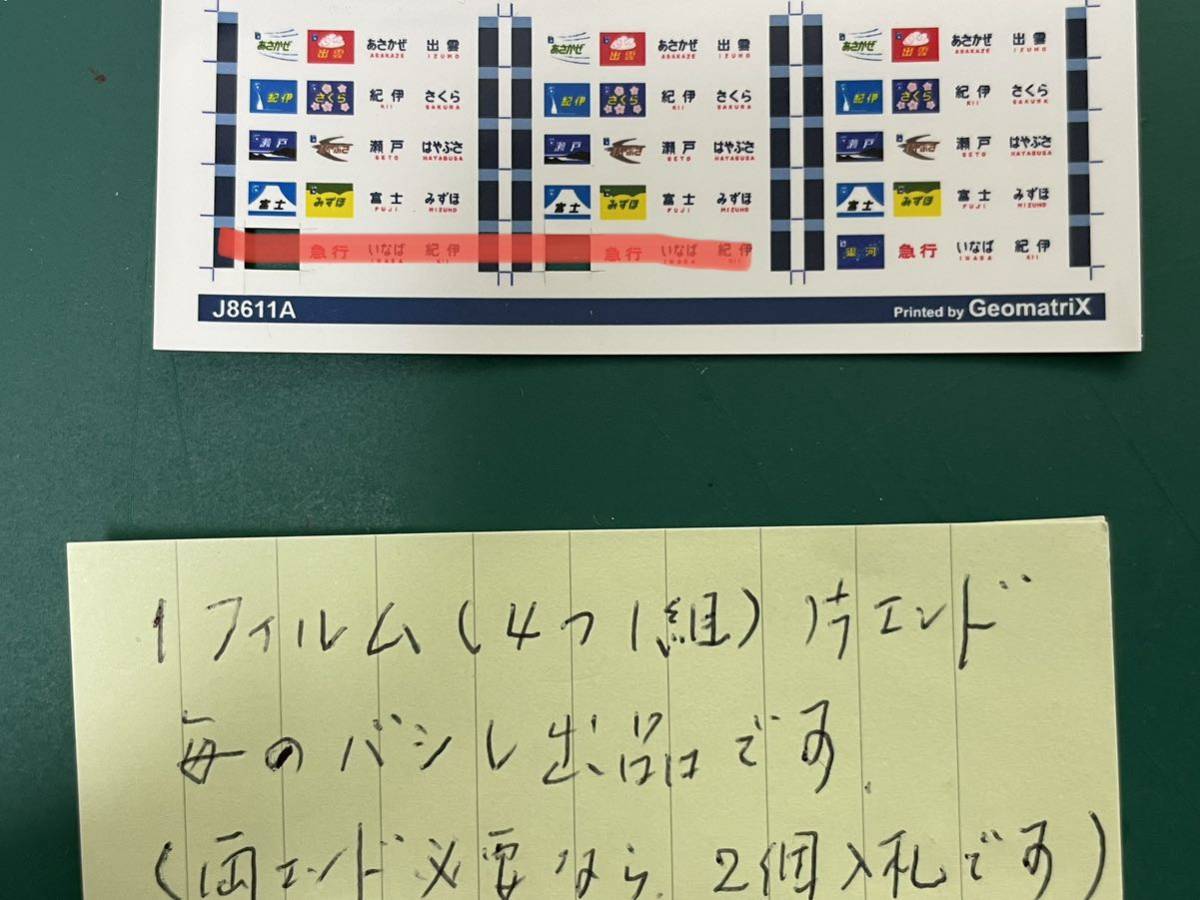 あさかぜ 出雲 あさかぜ 出雲 あさかぜ 出雲 あさかぜ 出雲 あさかぜ 出雲 あさかぜ 出雲
ASAKAZE IZUMO ASAKAZE IZUMO ASAKAZE IZUMO
紀伊 さくら 紀伊 さくら 紀伊 さくら 紀伊 さくら 紀伊 さくら 紀伊 さくら
KII SAKURA KII SAKURA KII SAKURA
瀬戸 瀬戸 はやぶさ 瀬戸 瀬戸 はやぶさ 瀬戸 瀬戸 はやぶさ
SETO HAYABUSA SETO HAYABUSA SETO HAYABUSA
富士 みずほ 富士 みずほ 富士 みずほ 富士 みずほ 富士 みずほ 富士 みずほ
FUJI MIZUHO FUJI MIZUHO FUJI MIZUHO
急行 いなば 紀伊 急行 いなば 紀伊 銀河 急行 いなば 紀伊
INABA KII INABA KII INABA KII
J8611A Printed by GeomatriX
1フィルム(4つ1組)片エンド
毎のバラシ出品です.
(両エンド必要なら、2個入札です)